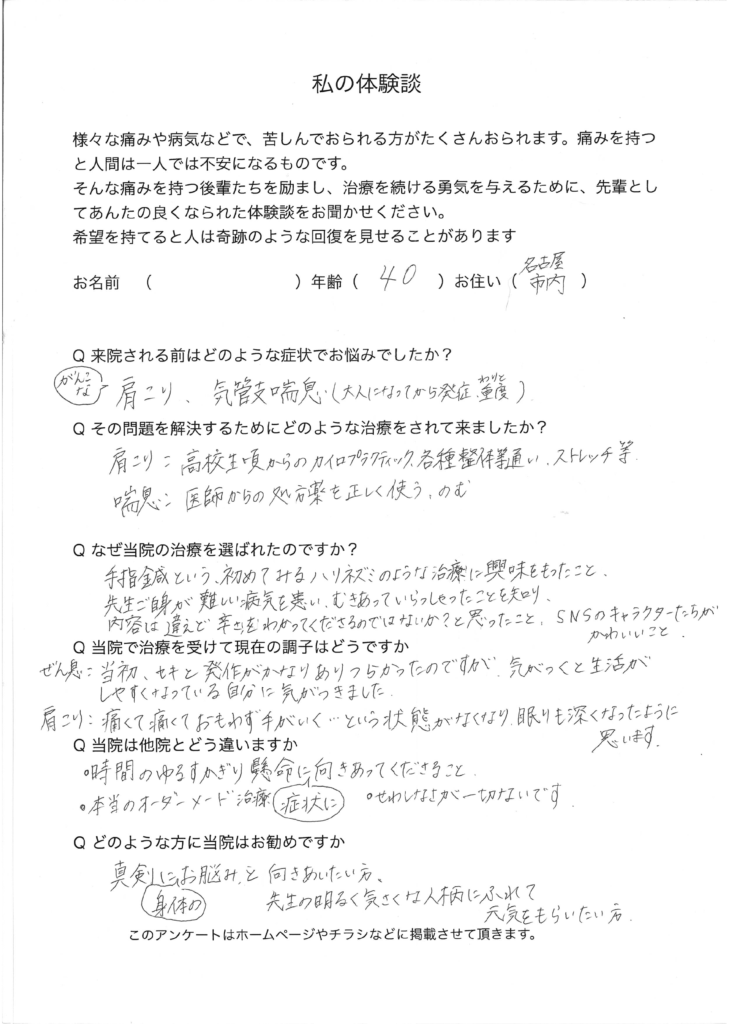 私の体験談
様々な痛みや病気などで、苦しんでおられる方がたくさんおられます。痛みを持つ
と人間は一人では不安になるものです。
そんな痛みを持つ後輩たちを励まし、治療を続ける勇気を与えるために、先輩とし
てあんたの良くなられた体験談をお聞かせください。
希望を持てると人は奇跡のような回復を見せることがあります
お名前 （ ）年齢（ 40 ）お住い（ 名古屋市内 ）
Q 来院される前はどのような症状でお悩みでしたか？
がんこな 肩こり、気管支喘息（大人になってから発症、わりと重度）
Q その問題を解決するためにどのような治療をされて来ましたか？
肩こり：高校生頃からのカイロプラクティック、各種整体等通い、ストレッチ等
喘息：医師からの処方薬を正しく使う、のむ
Q なぜ当院の治療を選ばれたのですか？
手指鍼という、初めてみるハリネズミのような治療に興味をもったこと、
先生ご自身が難しい病気を患い、むきあっていらっしゃったことを知り、
内容は違えど辛さをわかってくださるのではないか？と思ったこと、SNSのキャラクターたちが
かわいいこと。
Q 当院で治療を受けて現在の調子はどうですか
ぜん息：当初、セキと発作がかなりありつらかったのですが、気がつくと生活が
しやすくなっている自分に気がつきました。
肩こり：痛くて痛くておもわず手がいく…という状態がなくなり、眠りも深くなったように
思います。
Q 当院は他院とどう違いますか
•時間のゆるすかぎり懸命に症状に向きあってくださること
•本当のオーダーメード治療 •せわしなさが一切ないです
Q どのような方に当院はお勧めですか
真剣に身体のお悩みと向きあいたい方、
先生の明るく気さくな人柄にふれて
元気をもらいたい方
このアンケートはホームページやチラシなどに掲載させて頂きます。